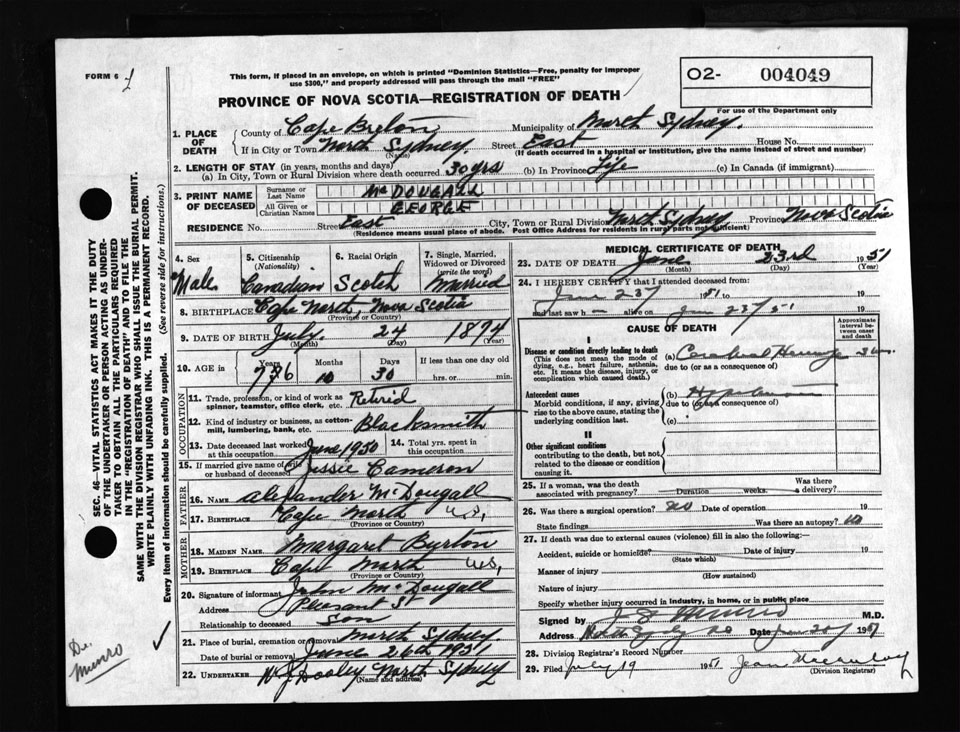 FORM 6
This form, if placed in an envelope, on which is printed "Dominion Statistics—Free, penalty for improper
use $300," and properly addressed will pass through the mail "FREE"
O2- 004049
PROVINCE OF NOVA SCOTIA—REGISTRATION OF DEATH
For use of the Department only
1. PLACE OF DEATH
County of Cape Breton Municipality of North Sydney.
If in City or Town North Sydney Street East House No.
(Name) (If death occurred in a hospital or institution, give the name instead of street and number)
2. LENGTH OF STAY (in years, months and days)
(a) In City, Town or Rural Division where death occurred 30 yrs (b) In Province Life (c) In Canada (if immigrant)
3. PRINT NAME OF DECEASED
Surname or Last Name McDOUGALL
All Given or Christian Names GEORGE
RESIDENCE No. Street East City, Town or Rural Division North Sydney Province Nova Scotia
(Residence means usual place of abode. Post Office Address for residents in rural parts not sufficient)
4. Sex Male
5. Citizenship (Nationality) Canadian
6. Racial Origin Scotch
7. Single, Married, Widowed or Divorced (write the word) Married
8. BIRTHPLACE Cape North, Nova Scotia
(Province or Country)
9. DATE OF BIRTH July 24 1874
(Month) (Day) (Year)
10. AGE in Years 76 Months 10 Days 30 If less than one day old
hrs. or min.
OCCUPATION
11. Trade, profession, or kind of work as spinner, teamster, office clerk, etc. Retired
12. Kind of industry or business, as cotton-mill, lumbering, bank, etc. Blacksmith
13. Date deceased last worked at this occupation June 1950
14. Total yrs. spent in this occupation
15. If married give name of wife or husband of deceased Jessie Cameron
FATHER
16. NAME Alexander McDougall
17. BIRTHPLACE Cape North N.S.
(Province or Country)
MOTHER
18. MAIDEN NAME Margaret Byrton
19. BIRTHPLACE Cape North N.S.
(Province or Country)
20. Signature of informant John McDougall
Address Pleasant St
Relationship to deceased son
21. Place of burial, cremation or removal North Sydney
Date of burial or removal June 26th 1951
22. UNDERTAKER W J Dooley North Sydney
(Name and address)
MEDICAL CERTIFICATE OF DEATH
23. DATE OF DEATH June 23rd 1951
(Month) (Day) (Year)
24. I HEREBY CERTIFY that I attended deceased from:
June 23/ 1951 to 19
and last saw h alive on June 23/51
CAUSE OF DEATH
Approximate interval between onset and death
I
Disease or condition directly leading to death
(This does not mean the mode of dying, e.g., heart failure, asthenia, etc. It means the disease, injury, or complication which caused death.)
(a) Cerebral
due to (or as a consequence of)
Antecedent causes
Morbid conditions, if any, giving rise to the above cause, stating the underlying condition last.
(b)
due to (or as a consequence of)
(c)
II
Other significant conditions
contributing to the death, but not related to the disease or condition causing it.
25. If a woman, was the death associated with pregnancy? Duration weeks. Was there a delivery?
26. Was there a surgical operation? no Date of operation 19
State findings Was there an autopsy? no
27. If death was due to external causes (violence) fill in also the following:—
Accident, suicide or homicide? Date of injury 19
(State which)
Manner of injury
(How sustained)
Nature of injury
Specify whether injury occurred in industry, in home, or in public place
Signed by Munro M.D.
Address Date 1951
28. Division Registrar's Record Number
29. Filed July 19 1951 Jean
(Division Registrar)
SEC. 46—VITAL STATISTICS ACT MAKES IT THE DUTY
OF THE UNDERTAKER OR PERSON ACTING AS UNDER-
TAKER TO OBTAIN ALL THE PARTICULARS REQUIRED
IN THE "REGISTRATION OF DEATH" AND TO FILE THE
SAME WITH THE DIVISION REGISTRAR WHO SHALL ISSUE THE BURIAL PERMIT.
WRITE PLAINLY WITH UNFADING INK. THIS IS A PERMANENT RECORD.
Every item of information should be carefully supplied. (See reverse side for instructions.)
Dr.
Munro